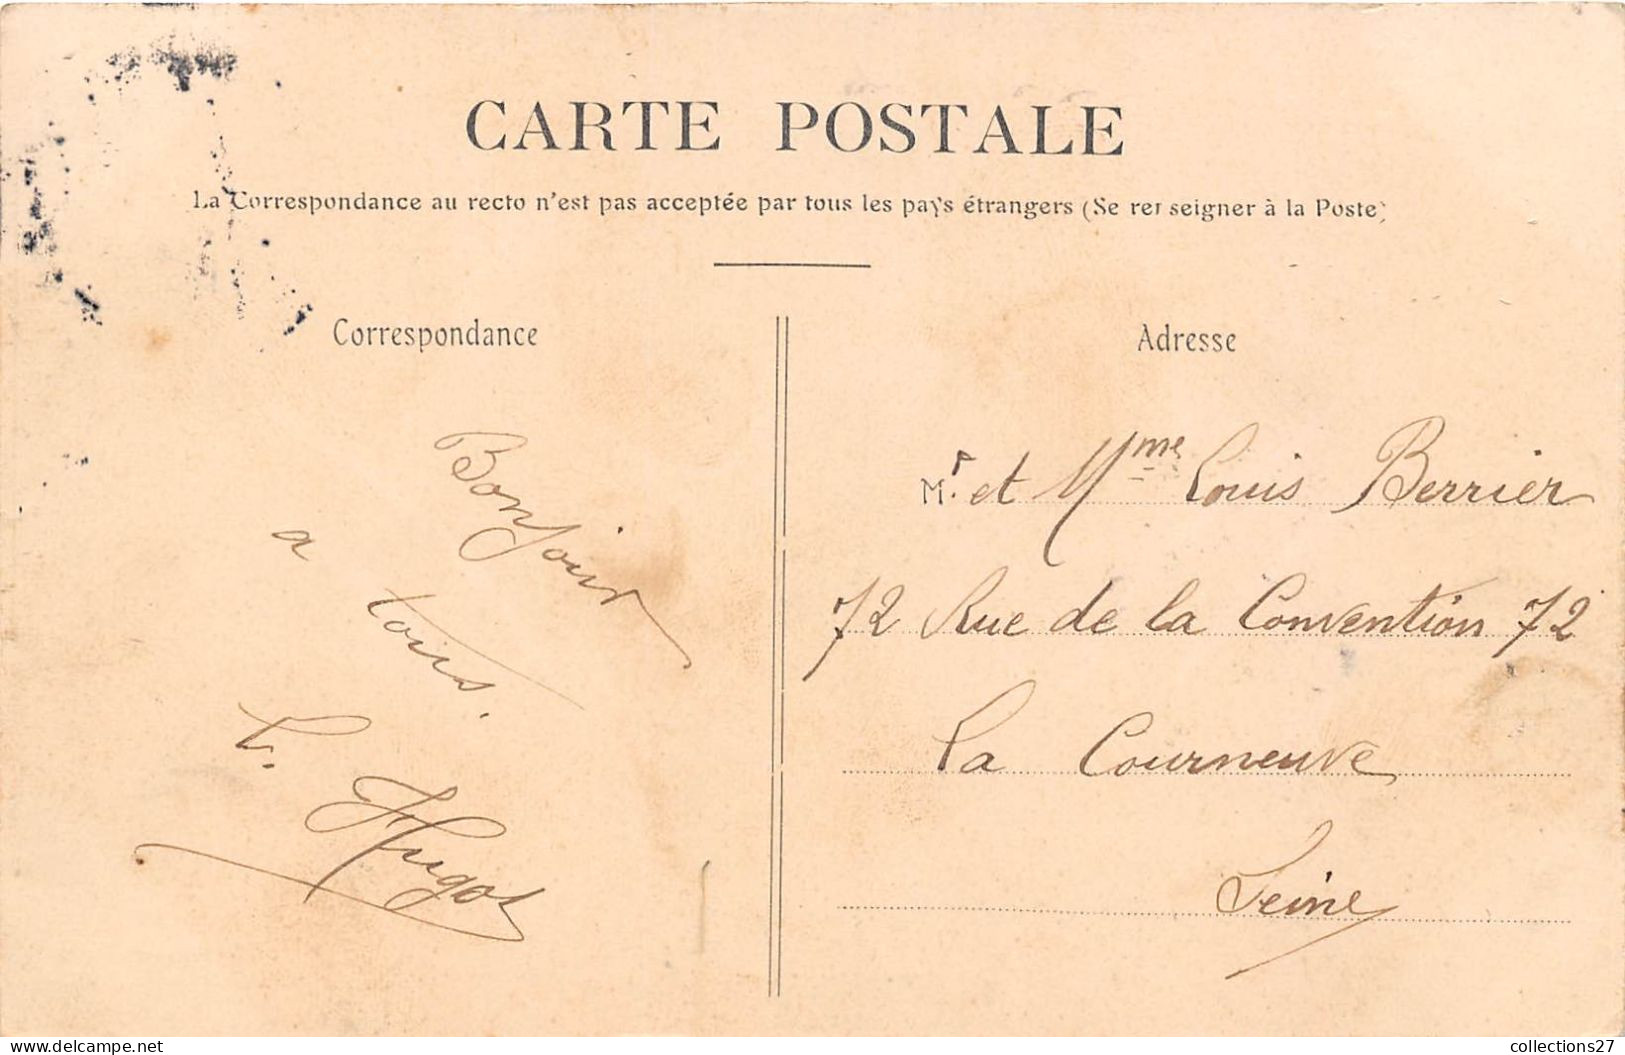 CARTE POSTALE
La Correspondance au recto n'est pas acceptée par tous les pays étrangers (Se renseigner à la Poste)
Correspondance
Bonjour
a tous.
L. Hugot
Adresse
Mr. et Mme Louis Berrier
72 Rue de la Convention 72
La Courneuve
Seine
www.delcampe.net
collections27